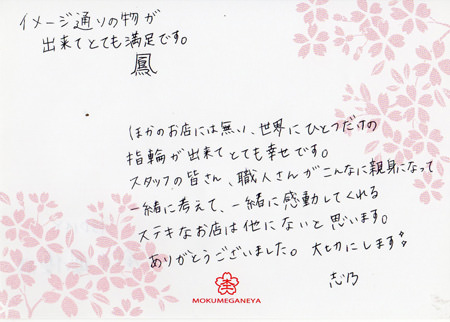 イメージ通りの物が
出来てとても満足です。
鳳
ほかのお店には無い、世界にひとつだけの
指輪が出来てとても幸せです。
スタッフの皆さん、職人さんがこんなに親身になって
一緒に考えて、一緒に感動してくれる
ステキなお店は他にないと思います。
ありがとうございました。大切にします
志乃
MOKUMEGANEYA